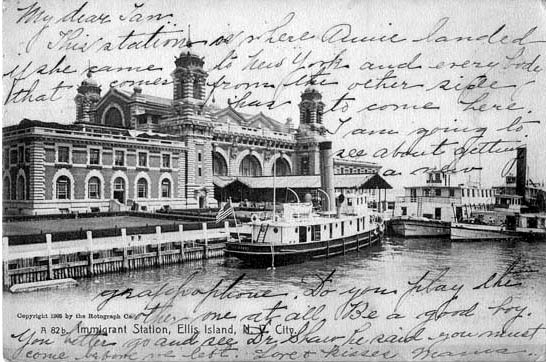 My dear Ian.
This station is where Annie landed
if she came to New York and every body
that comes from the other side
has to come here.
I am going to
see about getting
a new
Copyright 1905 by the Rotograph Co.
graphophone. Do you play the
other one at all Be a good boy.
R 82b. Immigrant Station, Ellis Island, N. Y. City.
You better go and see Dr Shaw he said you must
come before we left. Love & kisses Mamma.